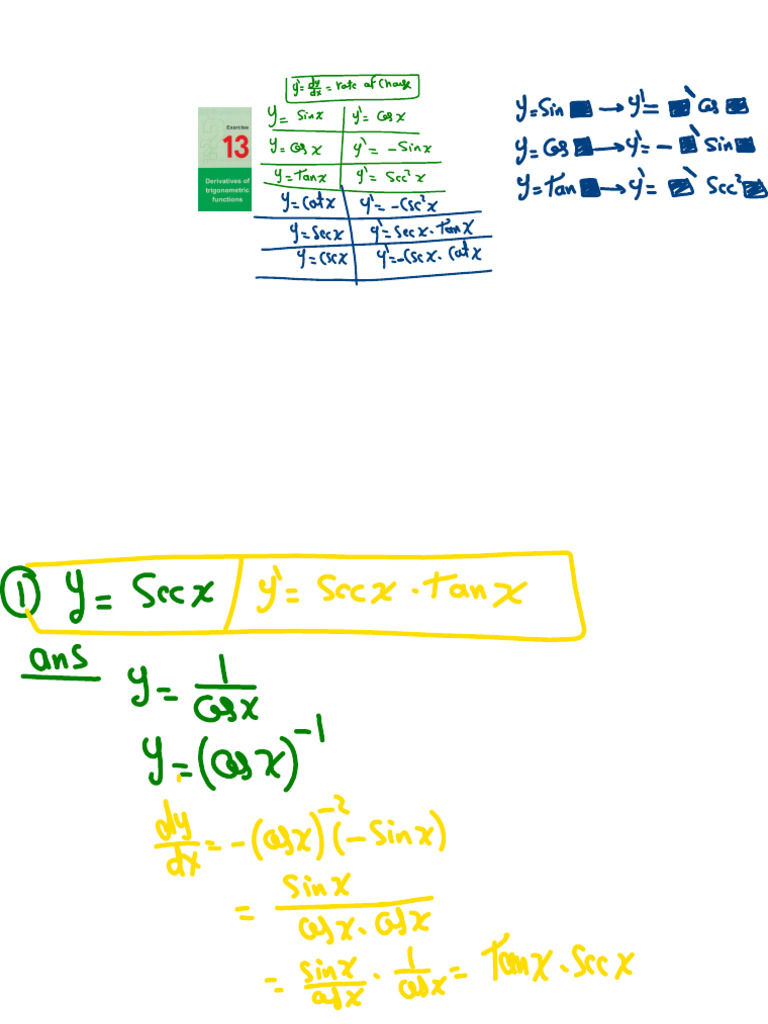 y' = dy/dx = rate of change
Exercise
13
Derivatives of
trigonometric
functions
y = Sin x | y' = Cos x
y = Cos x | y' = -Sin x
y = Tan x | y' = Sec² x
y = Cot x | y' = -Csc² x
y = Sec x | y' = Sec x . Tan x
y = Csc x | y' = -Csc x . Cot x
y = Sin ■ → y' = ■' Cos ■
y = Cos ■ → y' = - ■' Sin ■
y = Tan ■ → y' = ■' Sec² ■
① y = Sec x | y' = Sec x . Tan x
ans
y = 1/Cos x
y = (Cos x)⁻¹
dy/dx = -(Cos x)⁻² (-Sin x)
= Sin x / Cos x . Cos x
= Sin x/Cos x . 1/Cos x = Tan x . Sec x